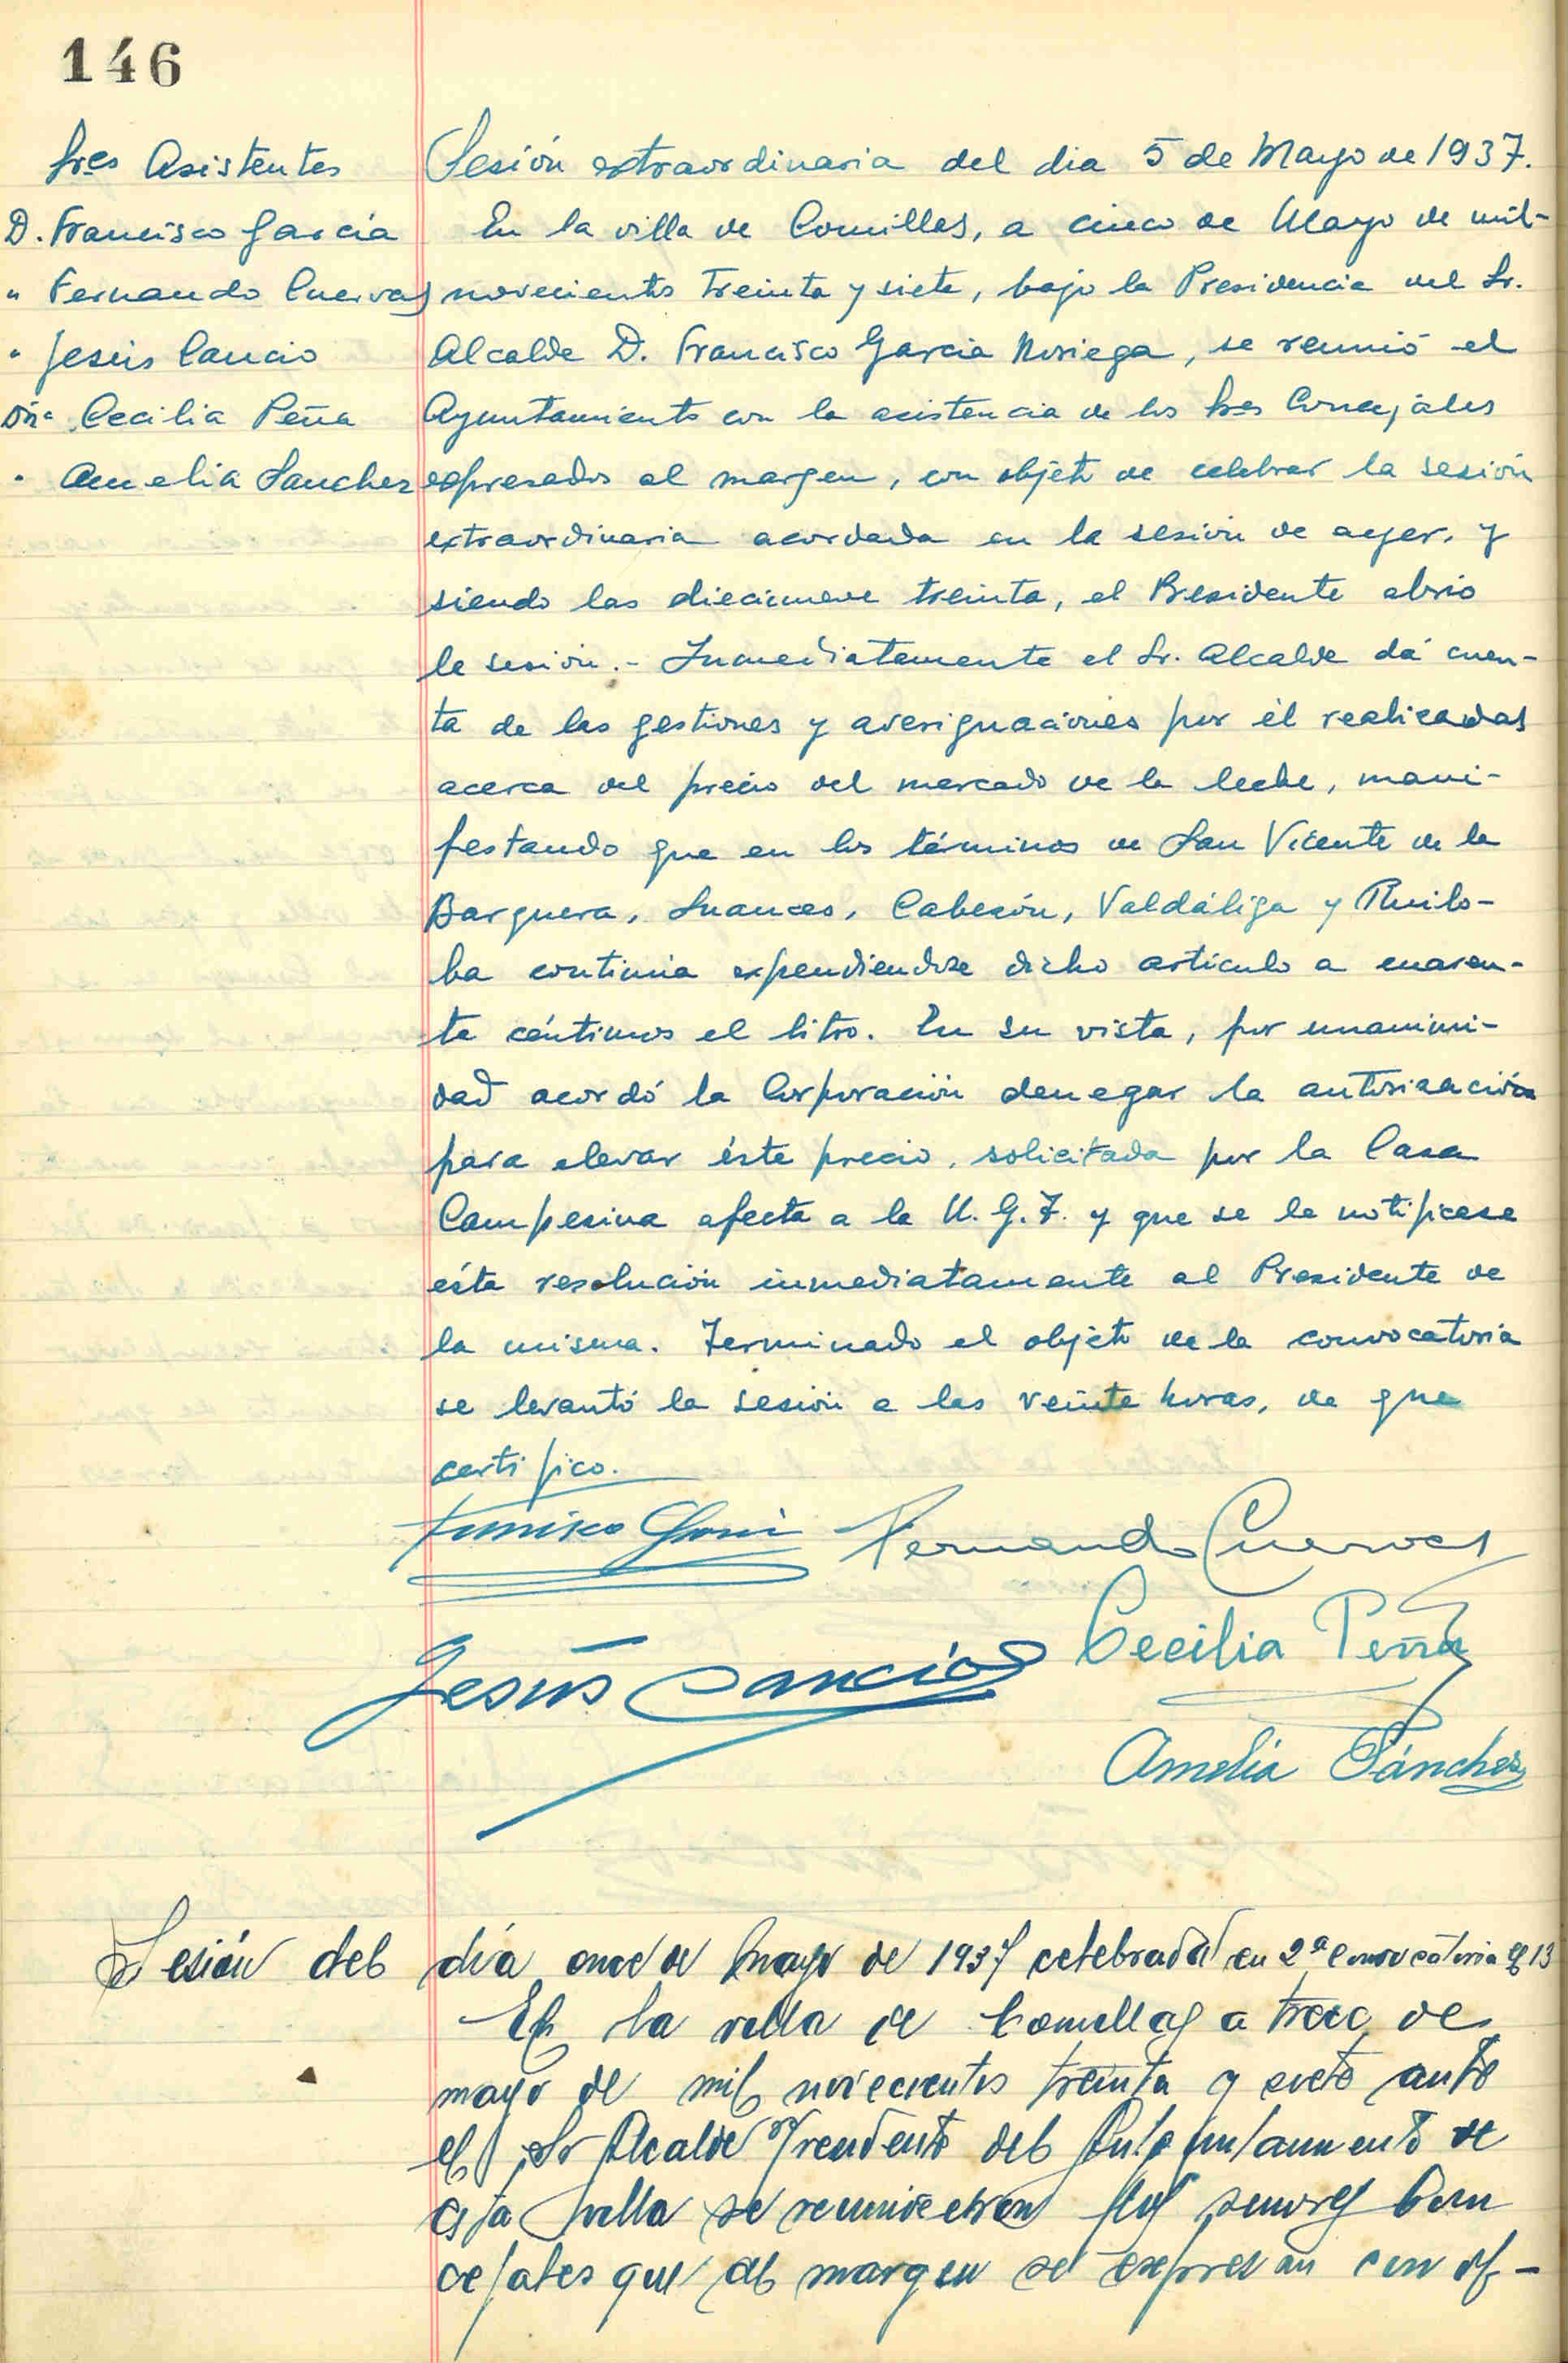 146
Sres Asistentes
D. Francisco García
" Fernando Cuervas
" Jesús Cancio
Dñª Cecilia Peña
" Amelia Sanchez
Sesión extraordinaria del dia 5 de Mayo de 1937.
En la villa de Comillas, a cinco de Mayo de mil-
novecientos treinta y siete, bajo la Presidencia del Sr.
Alcalde D. Francisco Garcia Noriega, se reunió el
Ayuntamiento con la asistencia de los Sres Concejales
expresados al margen, con objeto de celebrar la sesión
extraordinaria acordada en la sesión de ayer. y
siendo las diecinueve treinta, el Presidente abrio
la sesión.- Inmediatamente el Sr. Alcalde dá cuen-
ta de las gestiones y averiguaciones por él realizadas
acerca del precio del mercado de la leche, mani-
festando que en los términos de San Vicente de la
Barquera, Suances, Cabezón, Valdáliga y Ruilo-
ba continúa expendiendose dicho artículo a cuaren-
ta céntimos el litro. En su vista, por unanimi-
dad acordó la Corporación denegar la autorización
para elevar éste precio, solicitada por la Casa
Campesina afecta a la U.G.T. y que se le notificase
ésta resolución inmediatamente al Presidente de
la misma. Terminado el objeto de la convocatoria
se levantó la sesión a las veinte horas, de que
certifico.
Francisco García Fernando Cuervas
Jesús Cancio Cecilia Peña
Amelia Sánchez
Sesión del día once de mayo de 1937 celebrada en 2ª convocatoria el 13
En la villa de Comillas a trece de
mayo de mil novecientos treinta y siete ante
el Sr Alcalde Presidente del Ayuntamiento de
esta villa se reunieron los señores Con
cejales que al margen se expresan con ob-